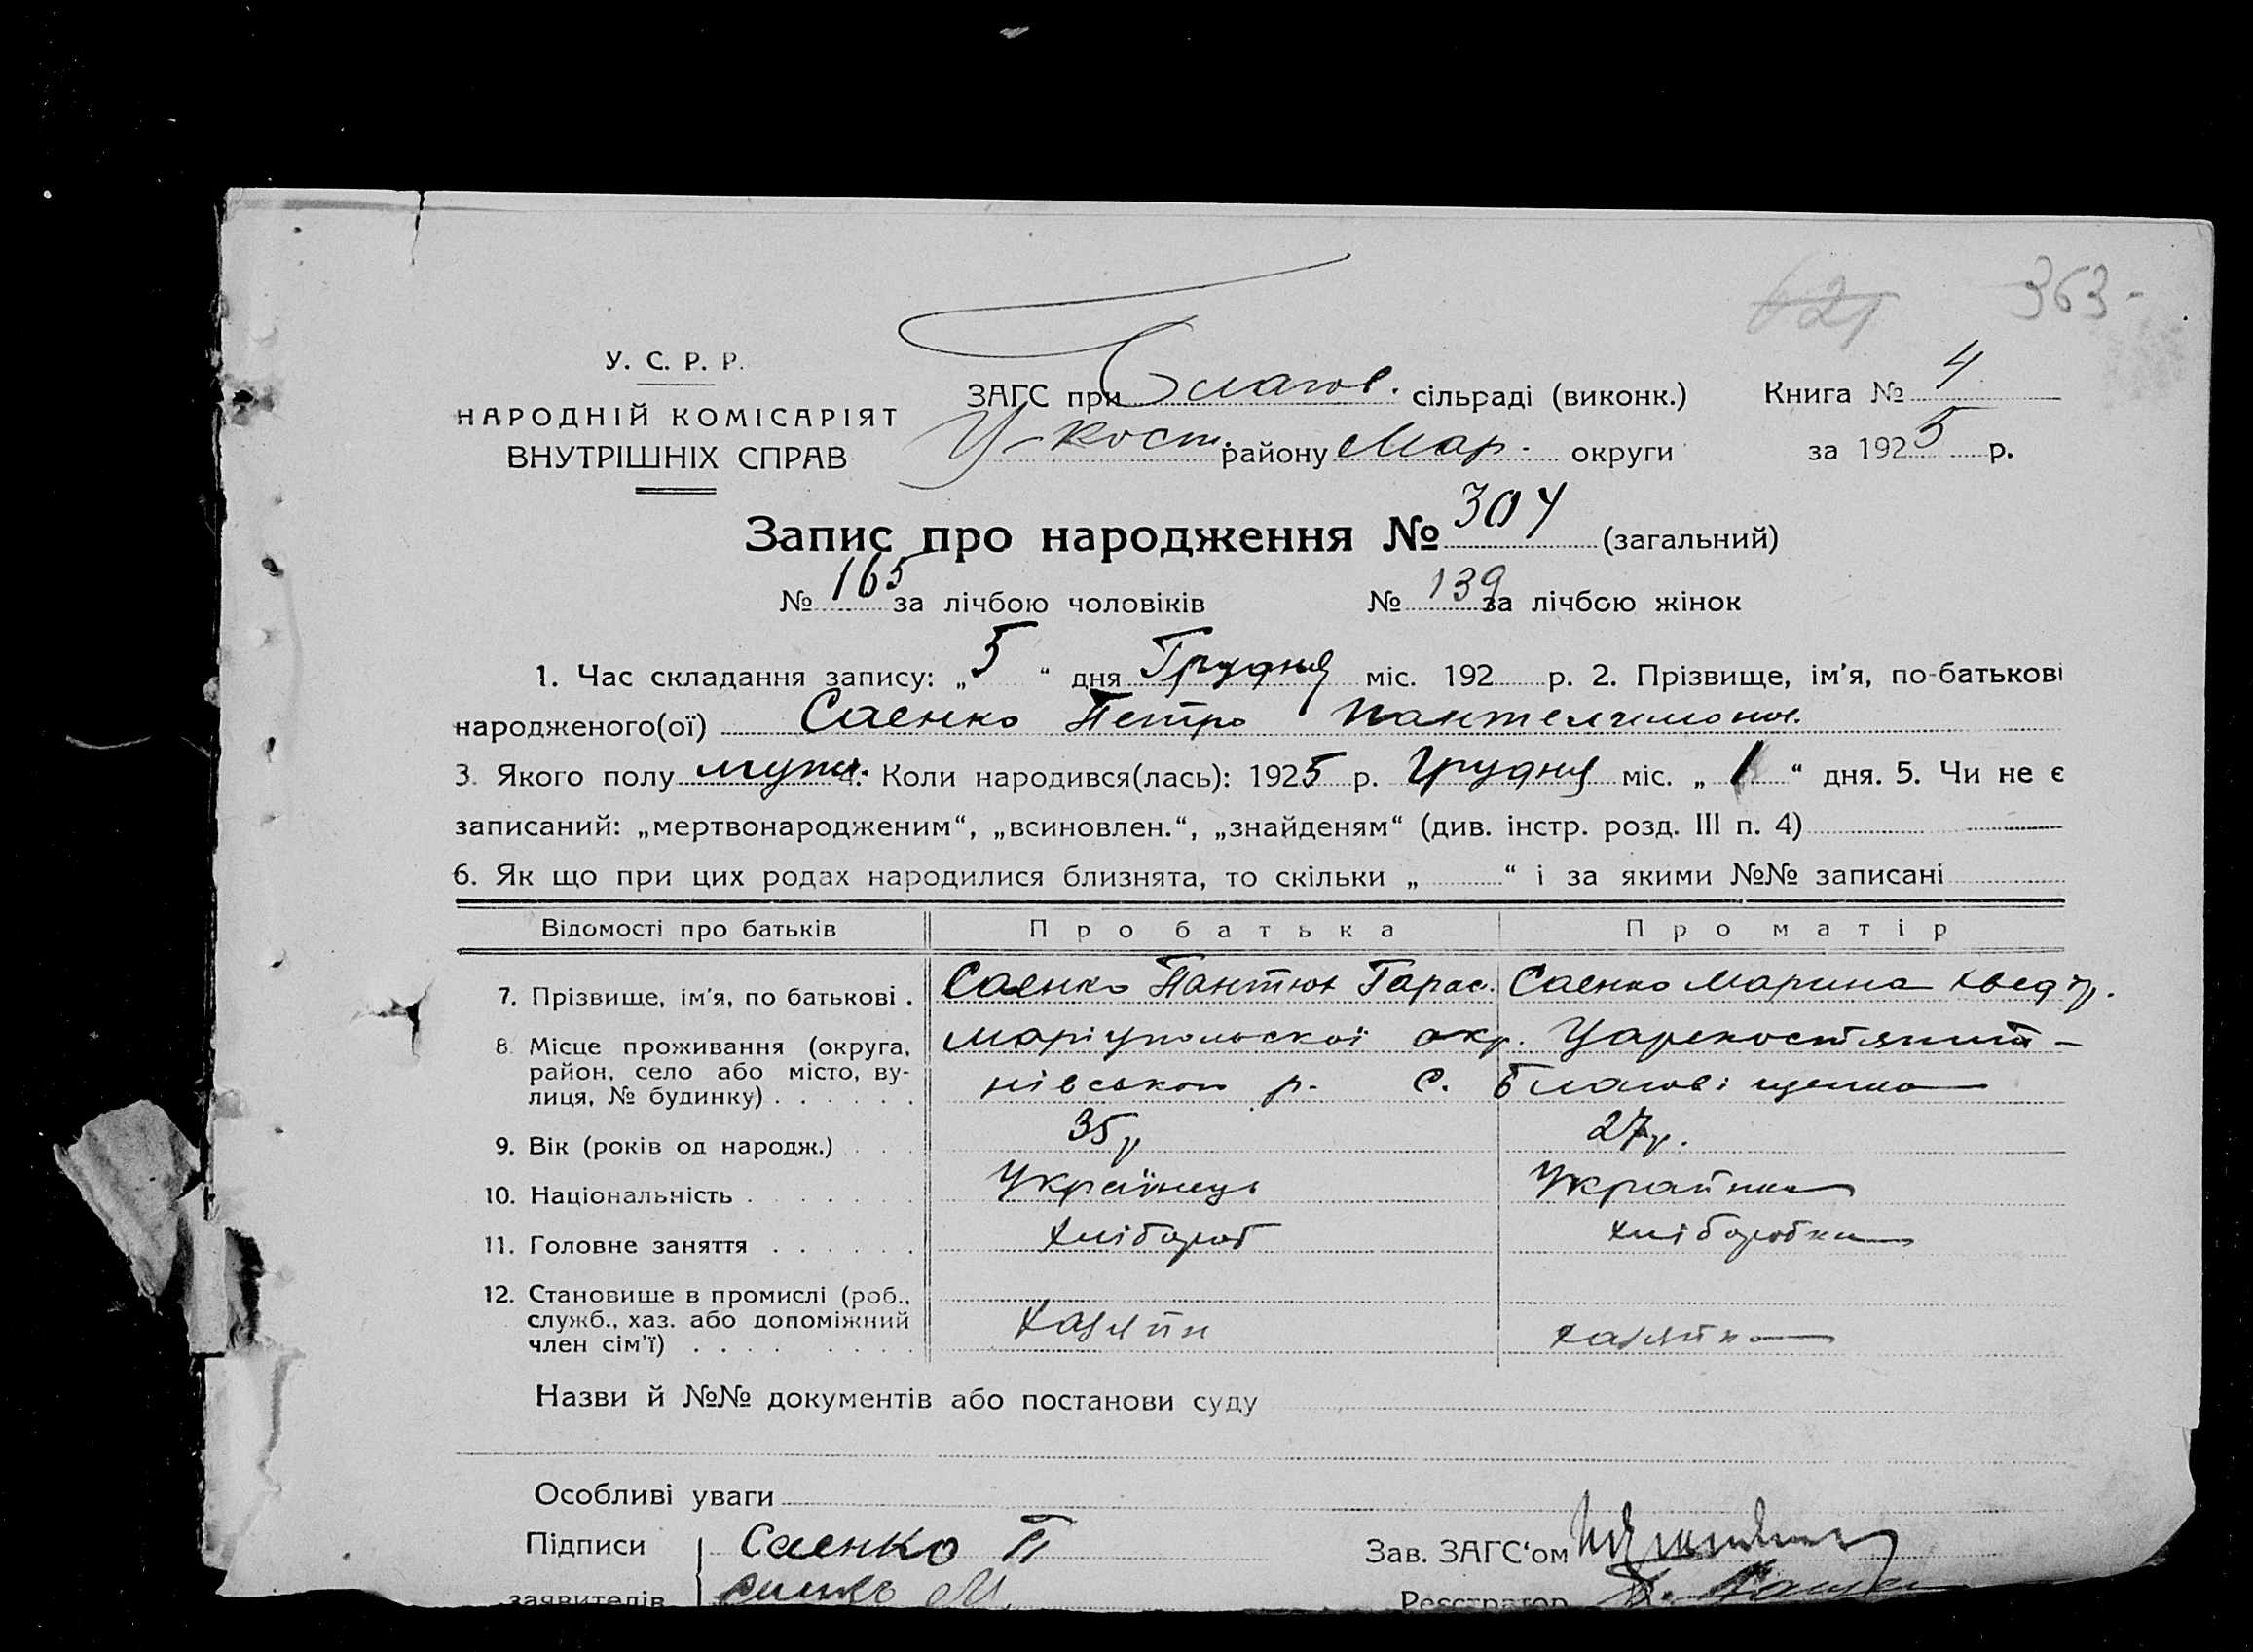 621 363-
У. С. Р. Р.
НАРОДНІЙ КОМІСАРІЯТ
ВНУТРІШНІХ СПРАВ
ЗАГС при Благов. сільраді (виконк.) Книга № 4
Ц-Кост. району Мар. округи за 1925 р.
Запис про народження № 304 (загальний)
№ 165 за лічбою чоловіків № 139 за лічбою жінок
1. Час складання запису: „5“ дня Грудня міс. 192 р. 2. Прізвище, ім'я, по-батькові
народженого(ої) Саенко Петро Пантелимонов.
3. Якого полу муж. 4. Коли народився(лась): 1925 р. Грудня міс. „1“ дня. 5. Чи не є
записаний: „мертвонародженим“, „всиновлен.“, „знайденям“ (див. інстр. розд. III п. 4)
6. Як що при цих родах народилися близнята, то скільки „ “ і за якими №№ записані
Відомості про батьків Про батька Про матір
7. Прізвище, ім'я, по батькові . Саенко Пантюх Тарас. Саенко Марина
8. Місце проживання (округа, район, село або місто, вулиця, № будинку) . . . . . . Маріупольскої окр. Царекостянти-
нівського р. С. Благовіщенка
9. Вік (років од народж.) . . . 35 р 27 р.
10. Національність . . . . . . . Українець Українка
11. Головне заняття . . . . . . Хлібороб Хліборобка
12. Становище в промислі (роб.,
служб., хаз. або допоміжний
член сім'ї) . . . . . . . . Хазяїн Хазяйка
Назви й №№ документів або постанови суду
Особливі уваги
Підписи Саенко П Зав. ЗАГС'ом
заявителів М. Реєстратор